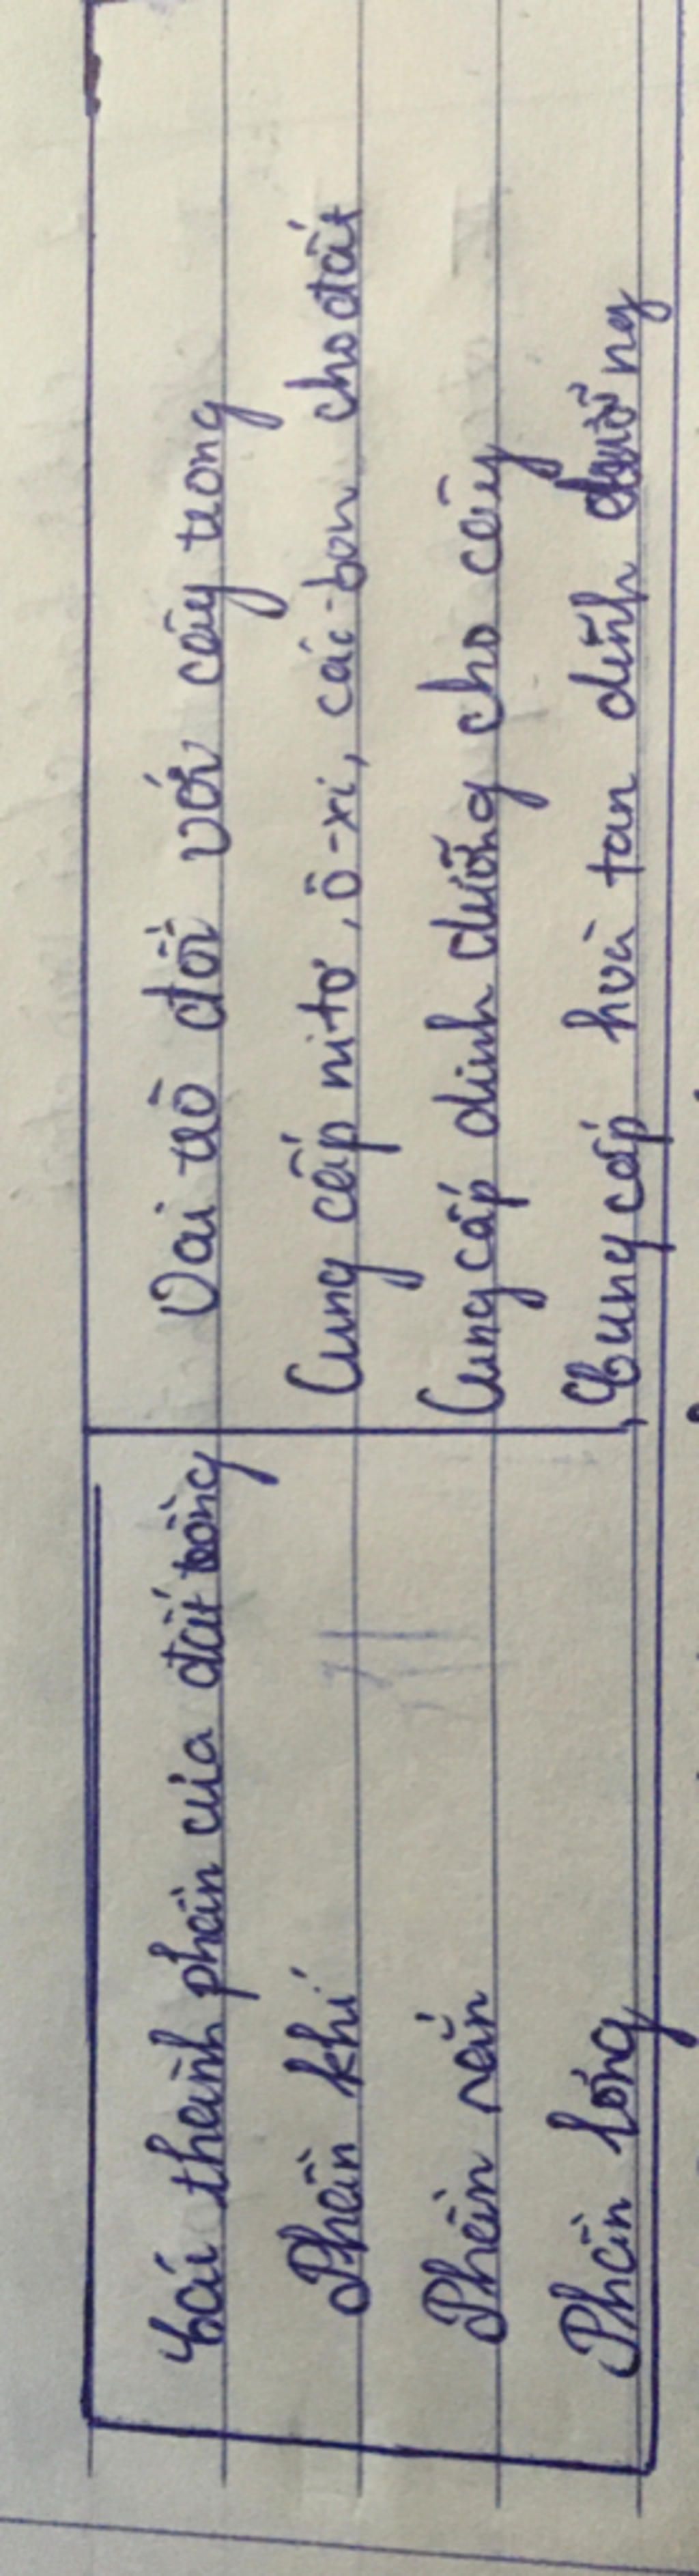 Các thành phần của đất trồng Vai trò đối với cây trồng
Phần khí Cung cấp nitơ, ô-xi, các-bon cho đất
Phần rắn Cung cấp dinh dưỡng cho cây
Phần lỏng Cung cấp hoà tan dinh dưỡng